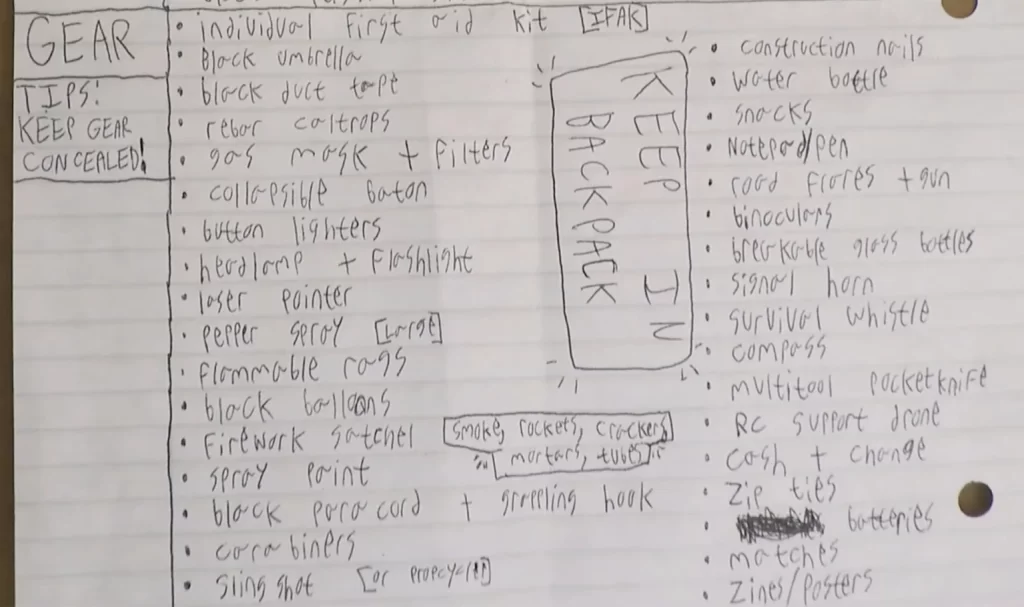 GEAR
TIPS:
KEEP GEAR
CONCEALED!
• individual first aid kit [IFAK]
• Black umbrella
• black duct tape
• rebar caltrops
• gas mask + filters
• collapsible baton
• button lighters
• headlamp + flashlight
• laser pointer
• pepper spray [Large]
• flammable rags
• black balloons
• firework satchel [smoke, rockets, crackers
mortars, tubes]
• spray paint
• black para cord + grappling hook
• carabiners
• sling shot [or
KEEP IN
BACKPACK
• construction nails
• water bottle
• snacks
• Notepad/pen
• road flares + gun
• binoculars
• breakable glass bottles
• signal horn
• survival whistle
• compass
• multitool pocketknife
• RC support drone
• cash + change
• Zip ties
• batteries
• matches
• Zines/Posters